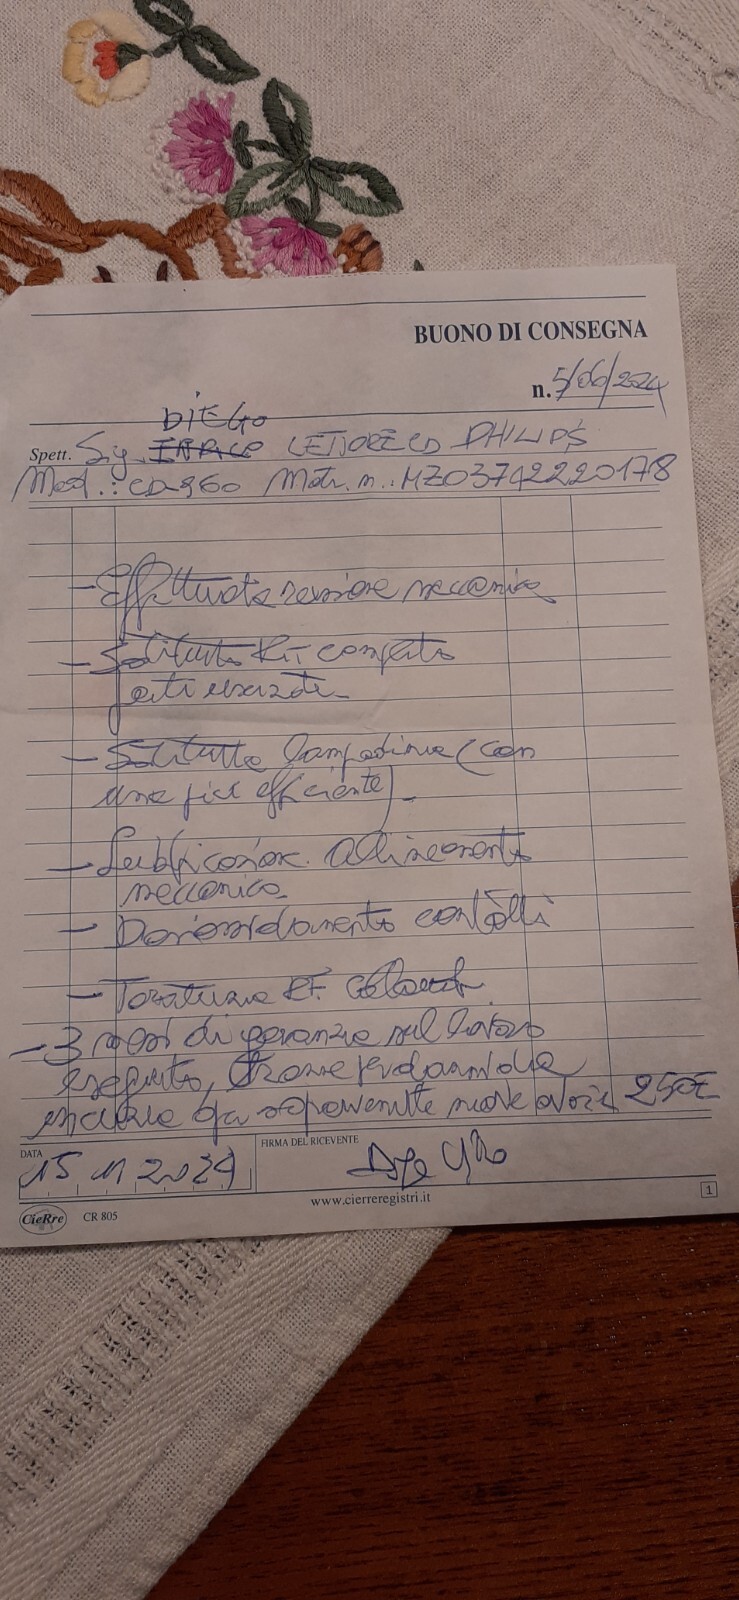 BUONO DI CONSEGNA
n. 5/06/2024
DIEGO
Spett. Sig. ENRICO LETTORE CD PHILIPS
Mod.: CD960 Matr. n.: HZ03742220178
- Effettuata revisione meccanica
- Sostituito Kit completo
parti usurate
- Sostituita lampadina (con
una più efficiente)
- Lubrificazione allineamento
meccanica
- Disossidamento contatti
- Taratura RF
- 3 mesi di garanzia sul lavoro
eseguito,
nuove 250€
DATA
15 11 2024
FIRMA DEL RICEVENTE
www.cierreregistri.it
1
CieRre
CR 805